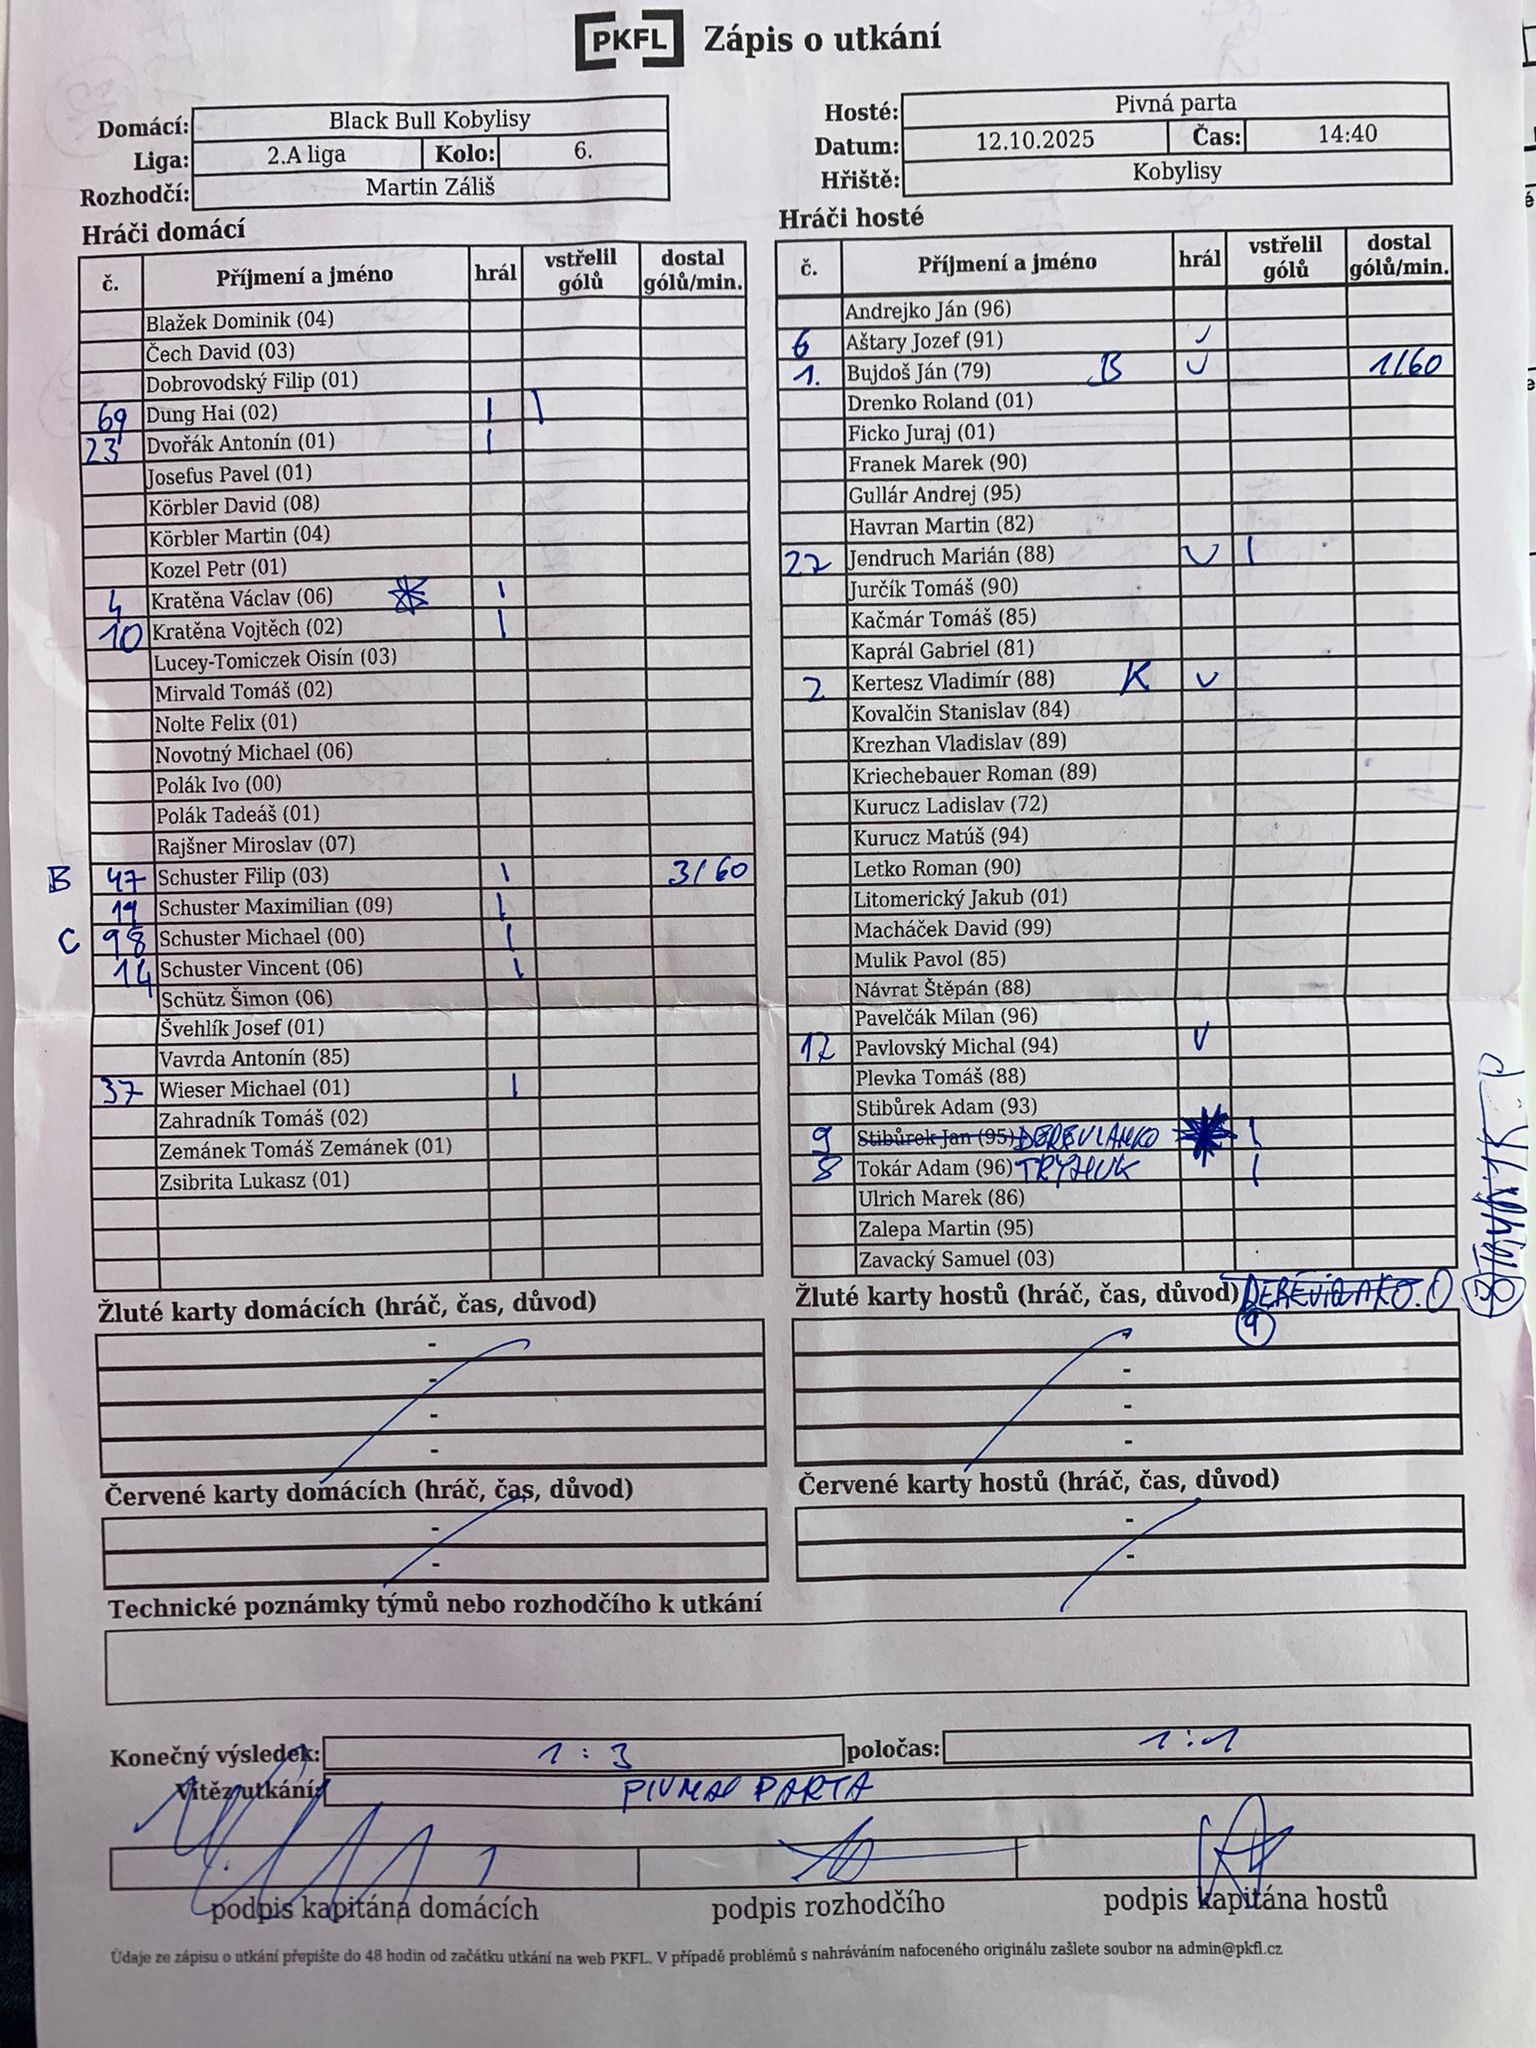 PKFL Zápis o utkání
Domácí: Black Bull Kobylisy
Liga: 2.A liga Kolo: 6.
Rozhodčí: Martin Záliš
Hosté: Pivná parta
Datum: 12.10.2025 Čas: 14:40
Hřiště: Kobylisy
Hráči domácí
č. Příjmení a jméno hrál vstřelil gólů dostal gólů/min.
Blažek Dominik (04)
Čech David (03)
Dobrovodský Filip (01)
69 Dung Hai (02) | |
23 Dvořák Antonín (01) |
Josefus Pavel (01)
Körbler David (08)
Körbler Martin (04)
Kozel Petr (01)
4 Kratěna Václav (06) * |
10 Kratěna Vojtěch (02) |
Lucey-Tomiczek Oisín (03)
Mirvald Tomáš (02)
Nolte Felix (01)
Novotný Michael (06)
Polák Ivo (00)
Polák Tadeáš (01)
Rajšner Miroslav (07)
B 47 Schuster Filip (03) | 3/60
19 Schuster Maximilian (09) |
C 98 Schuster Michael (00) |
14 Schuster Vincent (06) |
Schütz Šimon (06)
Švehlík Josef (01)
Vavrda Antonín (85)
37 Wieser Michael (01) |
Zahradník Tomáš (02)
Zemánek Tomáš Zemánek (01)
Zsibrita Lukasz (01)
Hráči hosté
č. Příjmení a jméno hrál vstřelil gólů dostal gólů/min.
Andrejko Ján (96)
6 Aštary Jozef (91) ✓
1. Bujdoš Ján (79) B ✓ 1/60
Drenko Roland (01)
Ficko Juraj (01)
Franek Marek (90)
Gullár Andrej (95)
Havran Martin (82)
22 Jendruch Marián (88) ✓ |
Jurčík Tomáš (90)
Kačmár Tomáš (85)
Kaprál Gabriel (81)
2 Kertesz Vladimír (88) K ✓
Kovalčin Stanislav (84)
Krezhan Vladislav (89)
Kriechebauer Roman (89)
Kurucz Ladislav (72)
Kurucz Matúš (94)
Letko Roman (90)
Litomerický Jakub (01)
Macháček David (99)
Mulik Pavol (85)
Návrat Štěpán (88)
Pavelčák Milan (96)
12 Pavlovský Michal (94) ✓
Plevka Tomáš (88)
Stibůrek Adam (93)
9 Stibůrek Jan (95) DEREVIANKO |
8 Tokár Adam (96) TRYHUK |
Ulrich Marek (86)
Zalepa Martin (95)
Zavacký Samuel (03)
Žluté karty domácích (hráč, čas, důvod)
-
-
-
-
Žluté karty hostů (hráč, čas, důvod)
9
-
-
-
Červené karty domácích (hráč, čas, důvod)
-
-
Červené karty hostů (hráč, čas, důvod)
-
-
Technické poznámky týmů nebo rozhodčího k utkání
Konečný výsledek: 1 : 3 poločas: 1 : 1
Vítěz utkání: PIVNÁ PARTA
podpis kapitána domácích podpis rozhodčího podpis kapitána hostů
Údaje ze zápisu o utkání přepište do 48 hodin od začátku utkání na web PKFL. V případě problémů s nahráváním nafoceného originálu zašlete soubor na admin@pkfl.cz